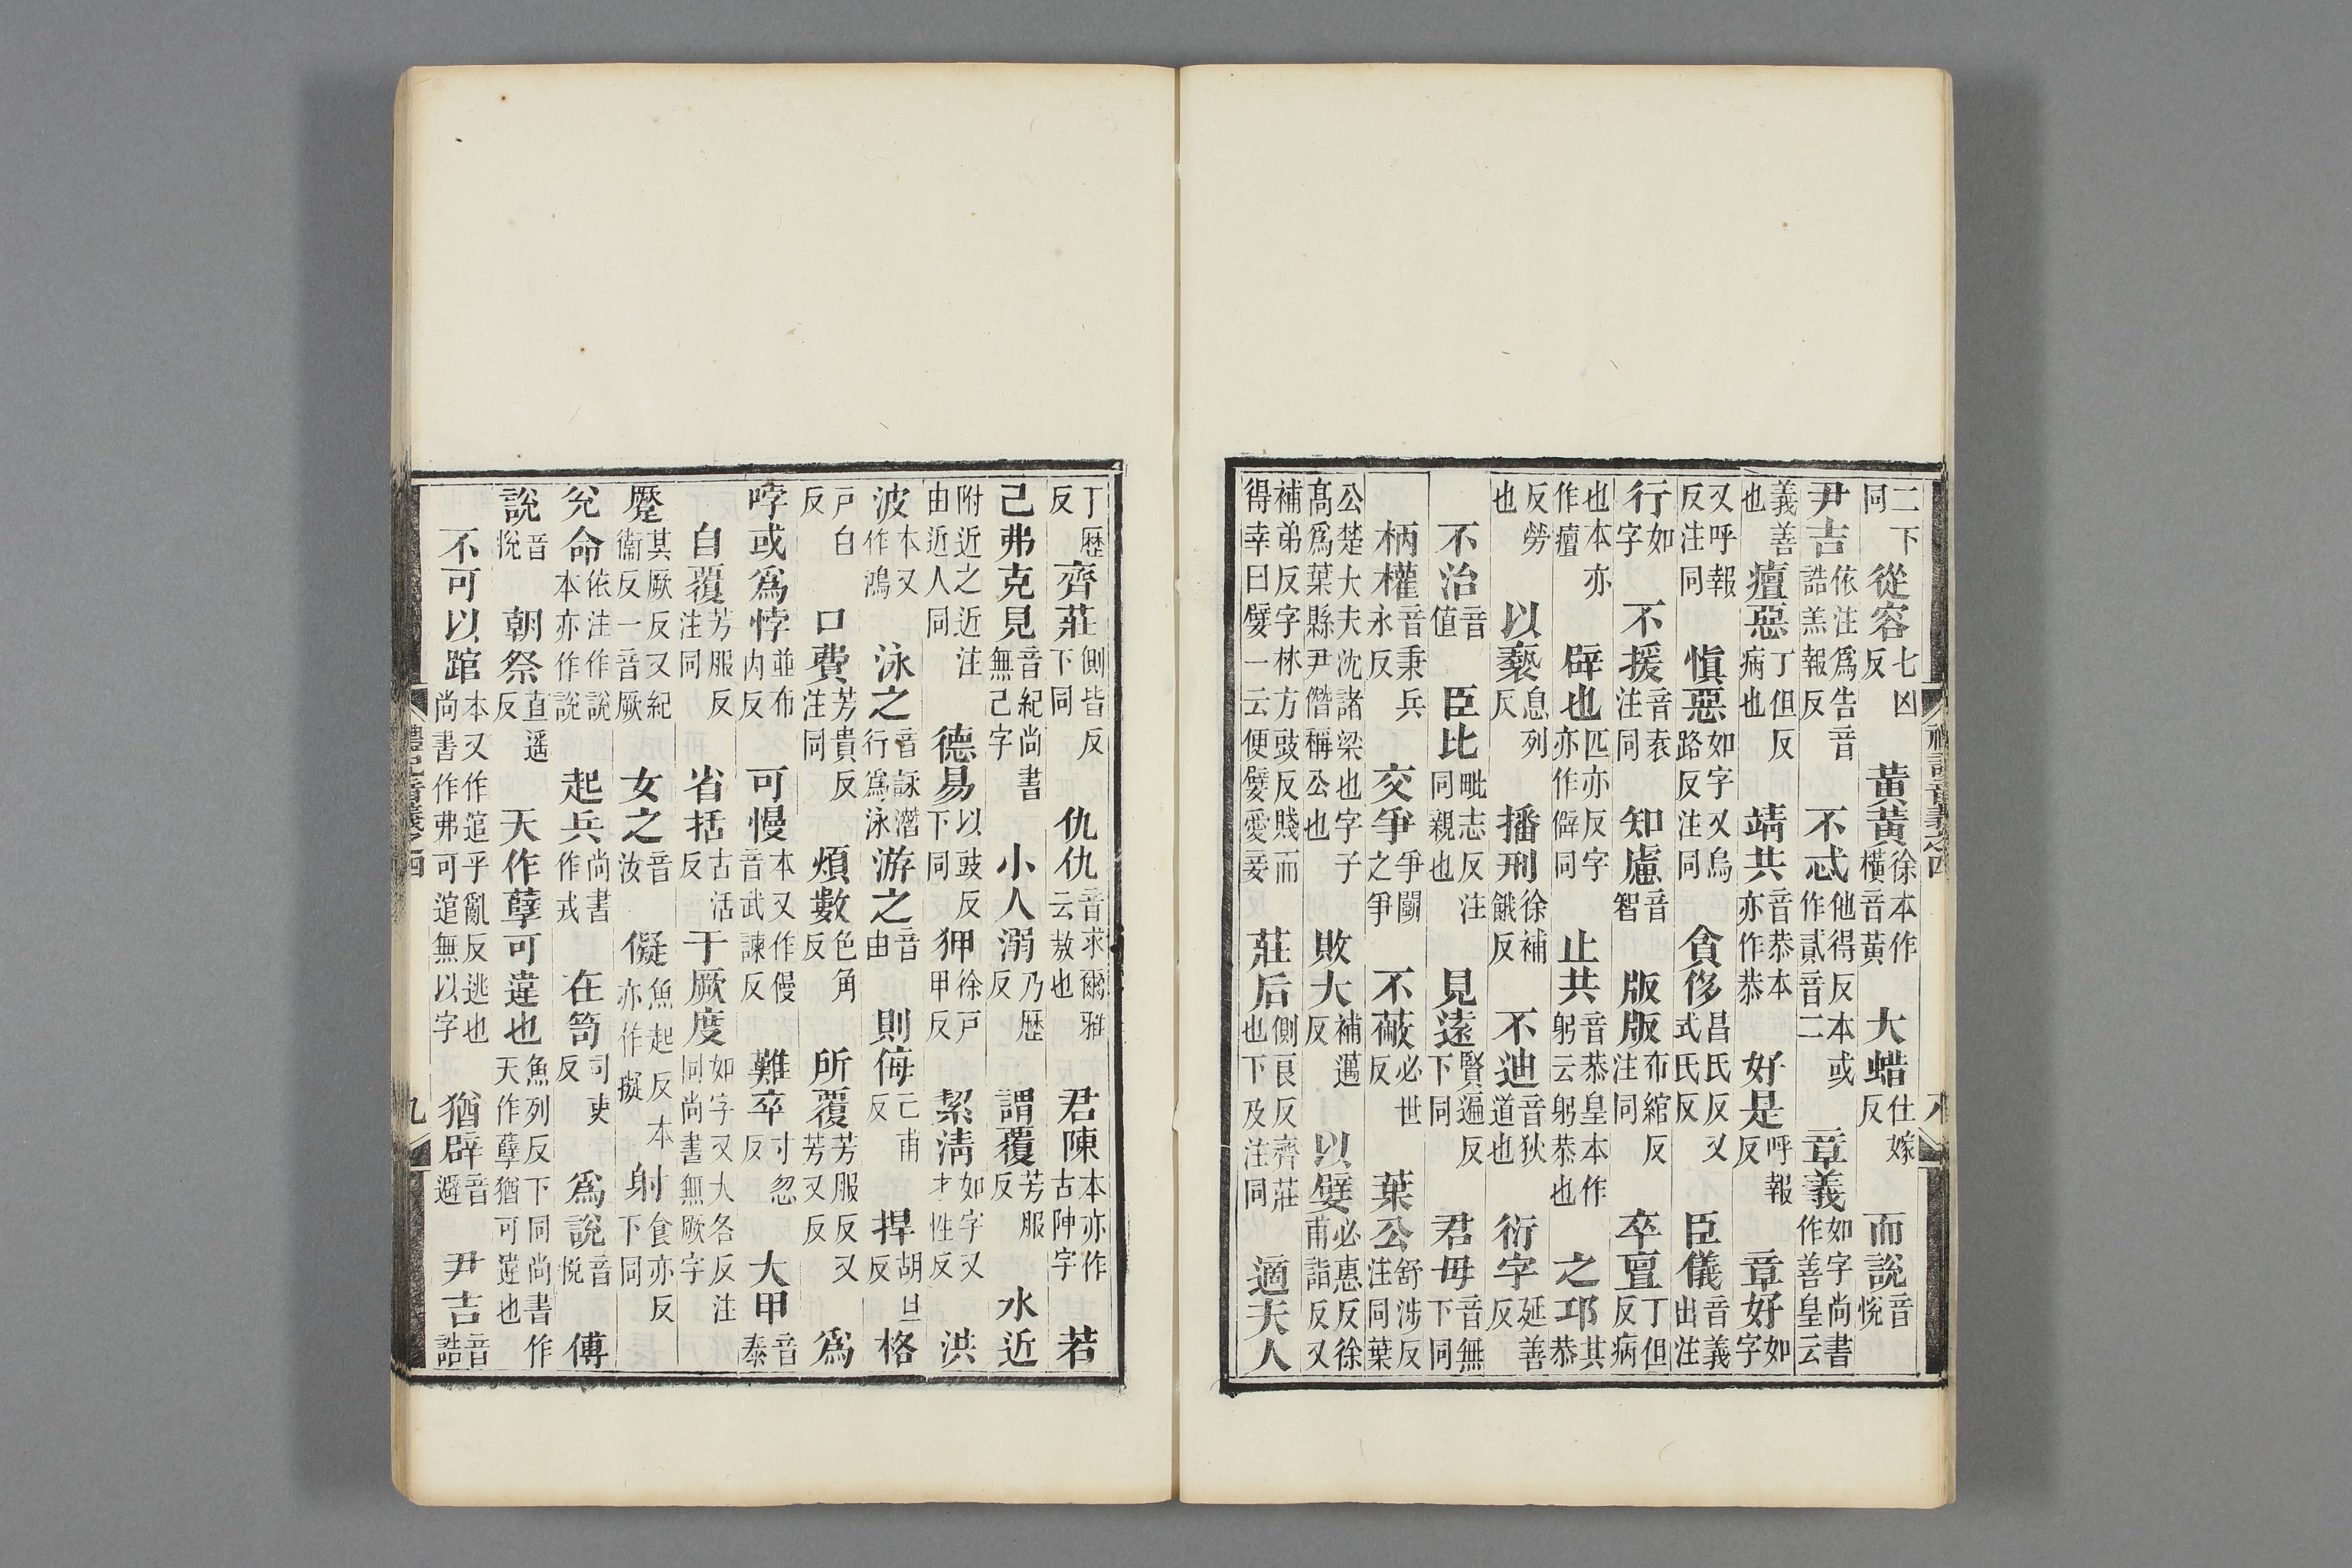 二下同從容七凶反黃黃徐本作橫音黃大蜡仕嫁反而說音悅
尹吉依注爲告音誥羔報反不忒他得反本或作貳音二章義如字尚書作善皇云
義善也癉惡丁但反病也靖共音恭本亦作恭好是呼報反章好如字
又呼報反注同愼惡如字又烏路反注同貪侈昌氏反又式氏反臣儀音義出注
行如字不援音袁注同知慮音智版版布綰反注同卒亶丁但反病
也本亦作癉辟也匹亦反字亦作僻同止共音恭皇本作躬云躬恭也之邛其恭
反勞也以褻息列反播刑徐補餓反不迪音狄道也衍字延善反
不治音值臣比毗志反注同親也見遠賢遍反下同君毋音無下同
柄權音秉兵永反交爭爭鬭之爭不蔽必世反葉公舒涉反注同葉
公楚大夫沈諸梁也字子高爲葉縣尹僭稱公也敗大補邁反以嬖必惠反徐甫詣反又
補弟反字林方豉反賤而得幸曰嬖一云便嬖愛妾莊后側良反齊莊也下及注同適夫人
丁歷反齊莊側皆反下同仇仇音求爾雅云敖也君陳本亦作古陣字若
己弗克見音紀尚書無己字小人溺乃歷反謂覆芳服反水近
附近之近注由近人同德易以豉反下同狎徐戶甲反絜清如字又才性反洪
波本又作鴻泳之音詠潛行爲泳游之音由則侮亡甫反捍胡旦反格
戶白反口費芳貴反注同煩數色角反所覆芳服反又芳又反爲
哱或爲悖並布內反可慢本又作僈音武諫反難卒寸忽反大甲音泰
自覆芳服反注同省括古活反于厥度如字又大各反注同尚書無厥字
蹷其厥反又紀衞反一音厥女之音汝儗魚起反本亦作擬射食亦反下同
兌命依注作說本亦作說起兵尚書作戎在笥司吏反爲說音悅傅
說音悅朝祭直遥反天作孽可違也魚列反下同尚書作天作孽猶可違也
不可以本又作逭乎亂反逃也尚書作弗可逭無以字猶辟音避尹吉音誥
禮記音義之四
九